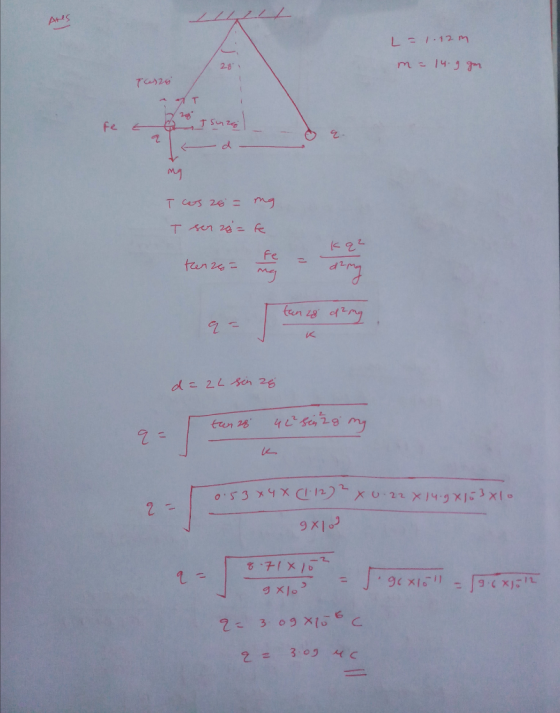 Ans
L = 1.12 m
m = 14.9 gm
28°
T cos28°
T
28°
Fe
T sin 28°
q
q.
d
mg
T cos 28° = mg
T sin 28° = Fe
tan 28° = Fe/mg = Kq²/d²mg
q = √(tan 28° d²mg/K)
d = 2L sin 28°
q = √(tan 28° 4L² sin² 28° mg/K)
q = √(0.53 × 4 × (1.12)² × 0.22 × 14.9 × 10⁻³ × 10/9 × 10⁹)
q = √(8.71 × 10⁻²/9 × 10⁹) = √(.96 × 10⁻¹¹) = √(9.6 × 10⁻¹²)
q = 3.09 × 10⁻⁶ C
q = 3.09 μC